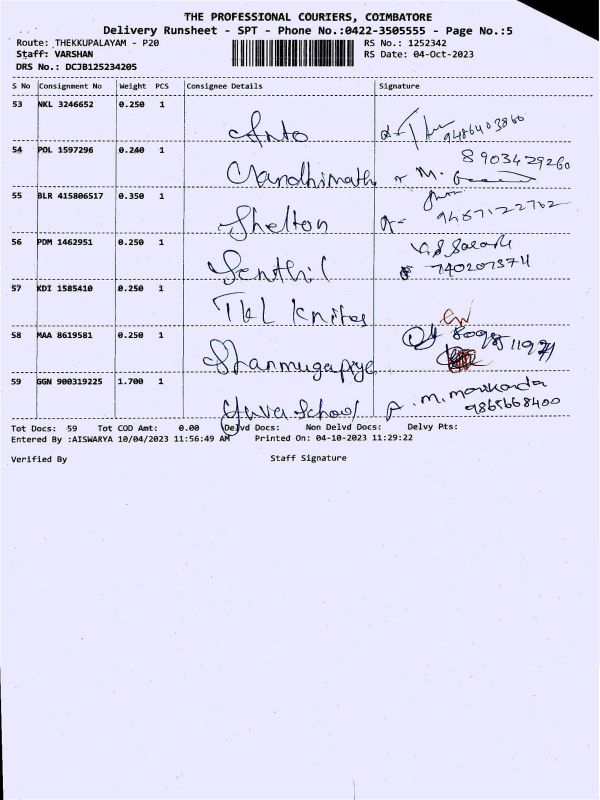 THE PROFESSIONAL COURIERS, COIMBATORE
Delivery Runsheet - SPT - Phone No.:0422-3505555 - Page No.:5
Route: THEKKUPALAYAM - P20 RS No.: 1252342
Staff: VARSHAN RS Date: 04-Oct-2023
DRS No.: DCJB125234205
S No Consignment No Weight PCS Consignee Details Signature
53 NKL 3246652 0.250 1
Anto 9486403860
54 POL 1597296 0.240 1 8903429260
Gandhimath M.
55 BLR 415806517 0.350 1
Shelton 9487122702
56 PDM 1462951 0.250 1
Senthil 7402073711
57 KDI 1585410 0.250 1
T&L Knites
58 MAA 8619581 0.250 1
Shanmugapriye
59 GGN 900319225 1.700 1
Yuva School 9865668400
Tot Docs: 59 Tot COD Amt: 0.00 Delvd Docs: Non Delvd Docs: Delvy Pts:
Entered By :AISWARYA 10/04/2023 11:56:49 AM Printed On: 04-10-2023 11:29:22
Verified By Staff Signature